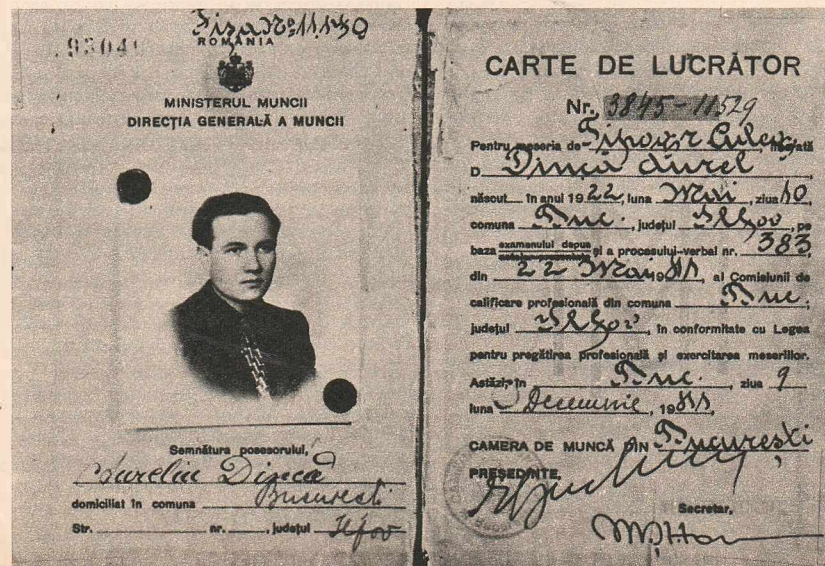 93049
Fișa No 11.130
ROMÂNIA
MINISTERUL MUNCII
DIRECȚIA GENERALĂ A MUNCII
Semnătura posesorului,
Aureliu Dincă
domiciliat în comuna București
Str. nr. , județul Ilfov
CARTE DE LUCRĂTOR
Nr. 3845-11529
Pentru meseria de Tipogr Culeg,
D Dincă Aurel
născut în anul 1922, luna Mai, ziua 10,
comuna Buc., județul Ilfov, pe
baza examenului depus și a procesului-verbal nr. 383,
din 22 Mai 19, al Comisiunii de
calificare profesională din comuna Buc,
județul Ilfov, în conformitate cu Legea
pentru pregătirea profesională și exercitarea meseriilor.
Astăzi, în Buc. ziua 9
luna Decemvrie, 19
CAMERA DE MUNCĂ DIN București
PREȘEDINTE,
Secretar,